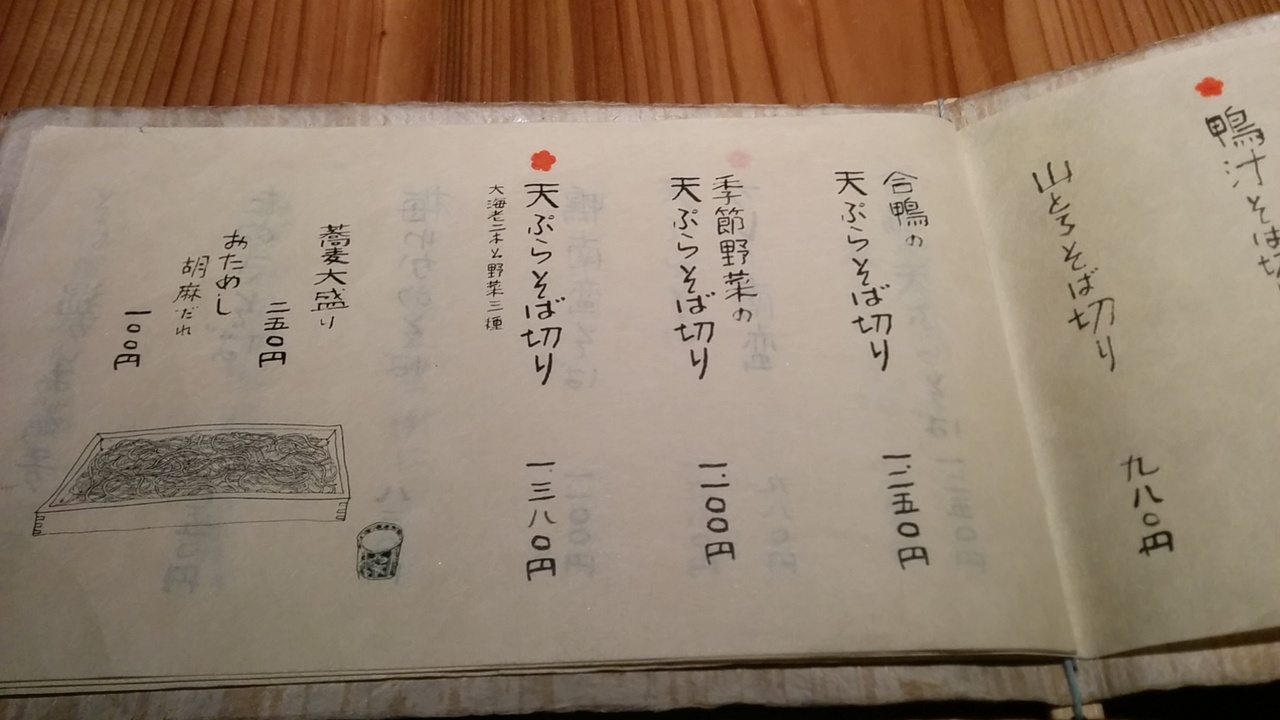 鴨汁そば切
山とろそば切り
九八〇円
合鴨の
天ぷらそば切り
一、二五〇円
季節野菜の
天ぷらそば切り
一、一〇〇円
天ぷらそば切り
大海老二本と野菜三種
一、三八〇円
蕎麦大盛り
二五〇円
おためし
胡麻だれ
一〇〇円